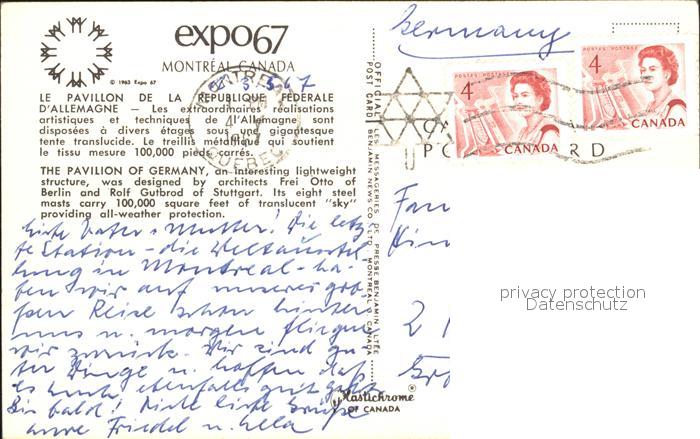 expo67
MONTRÉAL, CANADA
© 1963 Expo 67
LE PAVILLON DE LA RÉPUBLIQUE FÉDÉRALE
D'ALLEMAGNE — Les extraordinaires réalisations
artistiques et techniques de l'Allemagne sont
disposées à divers étages sous une gigantesque
tente translucide. Le treillis métallique qui soutient
le tissu mesure 100,000 pieds carrés.
THE PAVILION OF GERMANY, an interesting lightweight
structure, was designed by architects Frei Otto of
Berlin and Rolf Gutbrod of Stuttgart. Its eight steel
masts carry 100,000 square feet of translucent "sky"
providing all-weather protection.
Liebe Vater u. Mutter! Die letz-
te Station - die Weltausstel-
lung in Montreal - ha-
ben wir auf unserer gro-
ßen Reise schon hinter
uns u. morgen fliegen
wir zurück. Wir sind gu-
ter Dinge u. hoffen daß
es euch ebenfalls gut geht.
Bis bald! Viele liebe Grüße
eure Friedel u. Ella
OFFICIAL POST CARD
LES MESSAGERIES DE PRESSE BENJAMIN LTÉE
BENJAMIN NEWS CO. LTD. MONTREAL CANADA
Plastichrome®
OF CANADA
Germany
POSTES POSTAGE
4
CANADA
POSTES POSTAGE
4
CANADA
MONTREAL
QUEBEC
privacy protection
Datenschutz